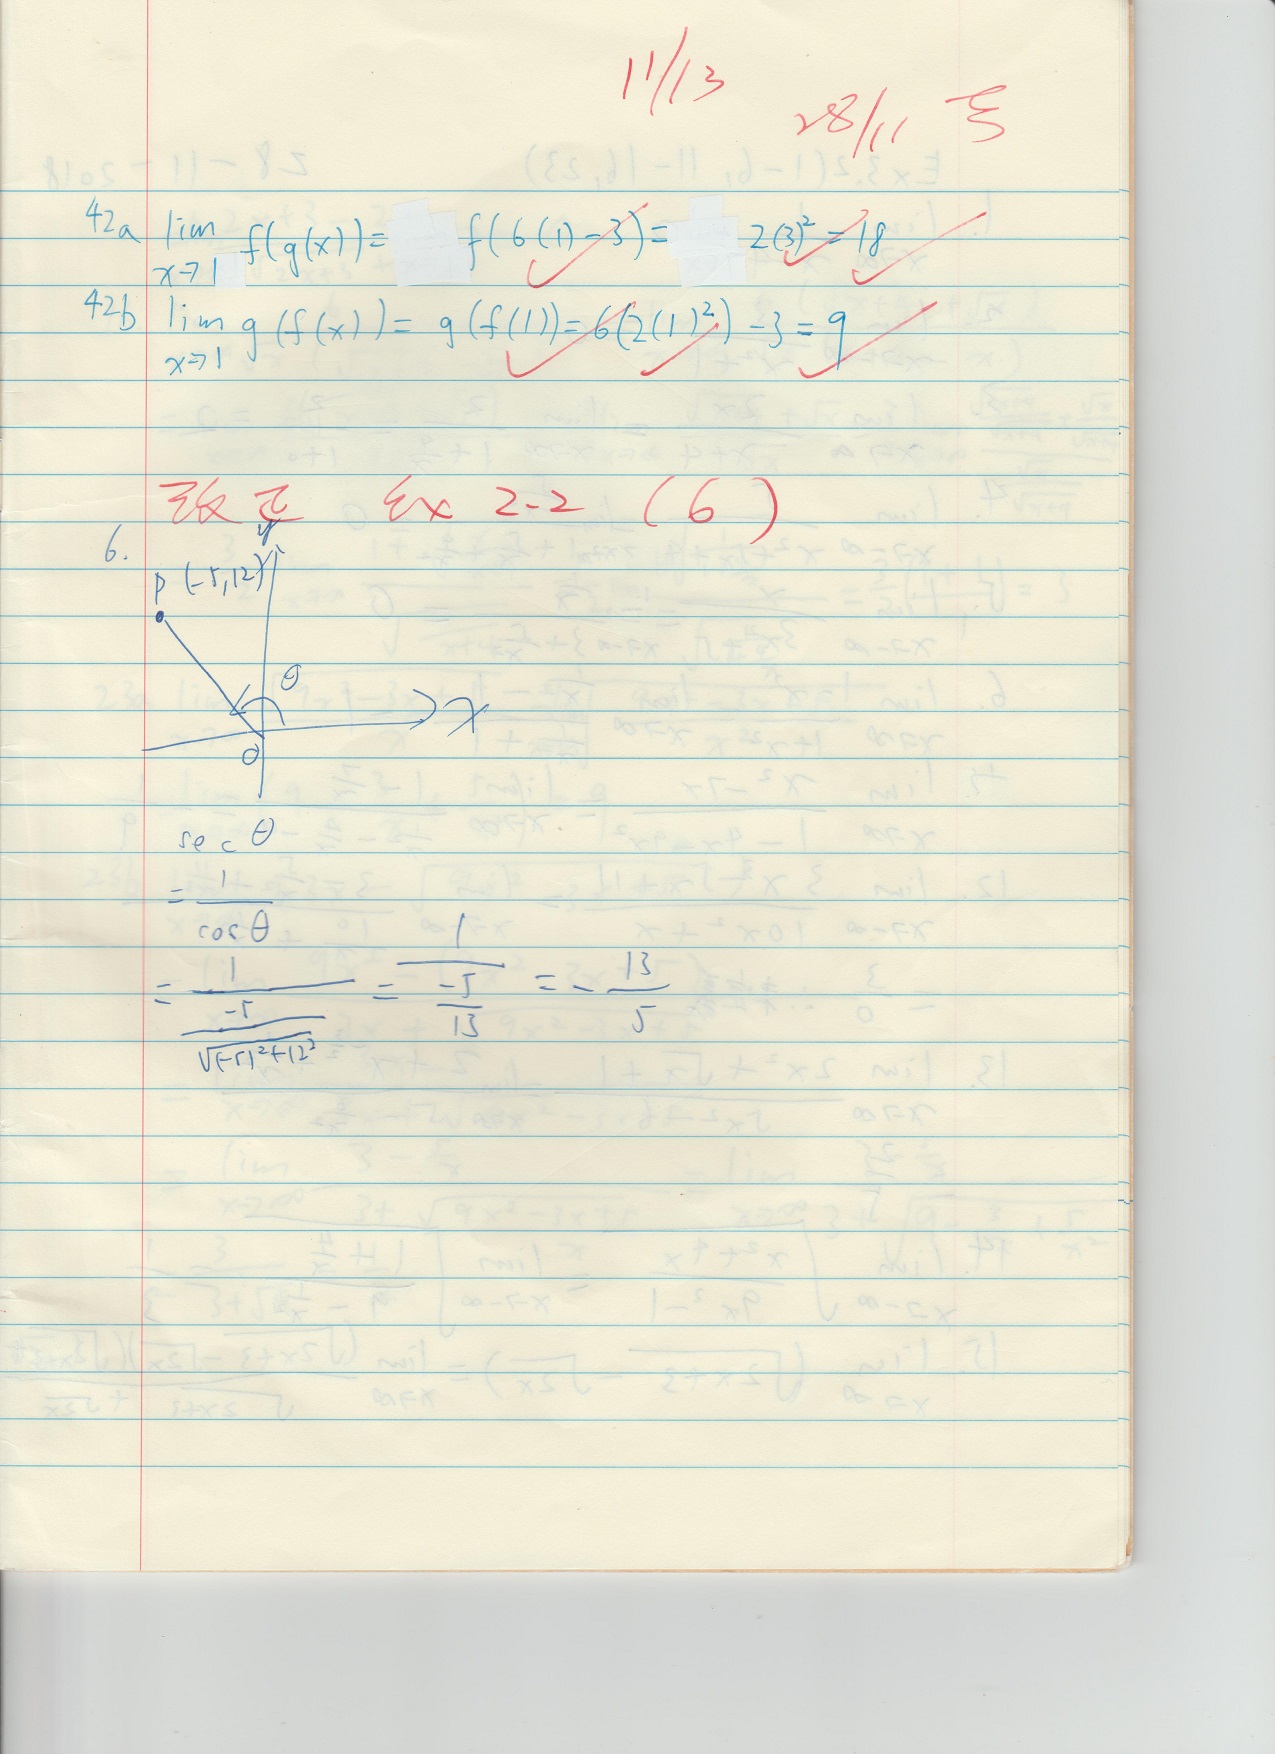 11/13
28/11
42a lim x→1 f(g(x)) = f(6(1)-3) = 2(3)² = 18
42b lim x→1 g(f(x)) = g(f(1)) = 6(2(1)²) - 3 = 9
改正 Ex 2-2 (6)
6.
y
P (-5,12)
θ
x
O
sec θ
= 1/cos θ
= 1/(-5/√(-5)²+12²) = 1/(-5/13) = -13/5